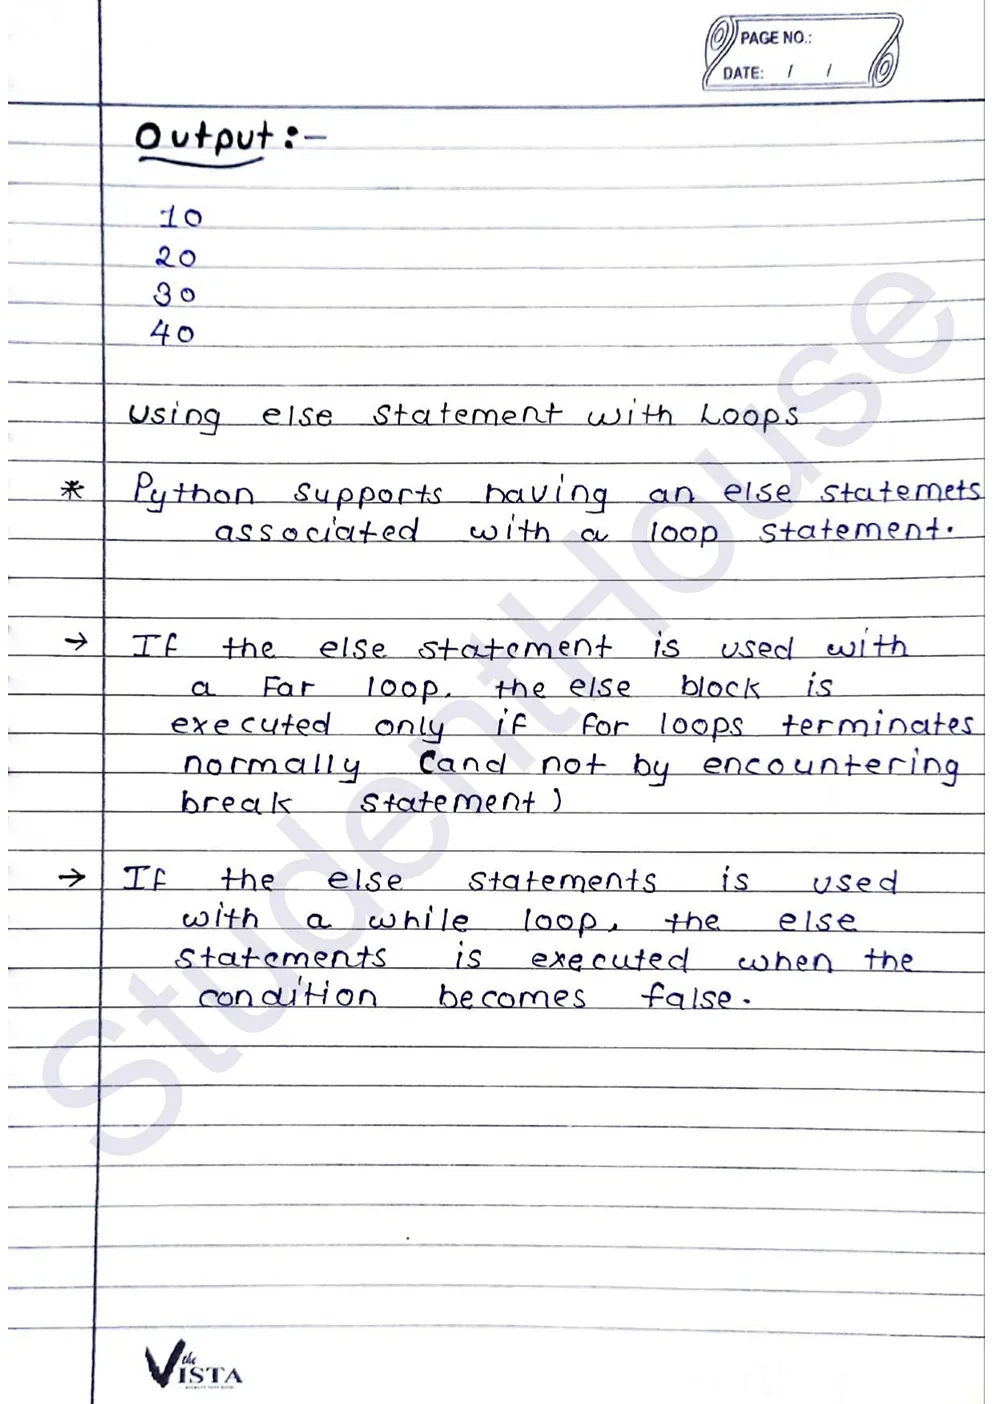 PAGE NO.:
DATE: / /
Output :-
10
20
30
40
Using else statement with Loops
* Python supports having an else statemets
associated with a loop statement.
→ If the else statement is used with
a For loop. the else block is
executed only if for loops terminates
normally (and not by encountering
break statement)
→ If the else statements is used
with a while loop, the else
statements is executed when the
condition becomes false.
StudentHouse
the
VISTA